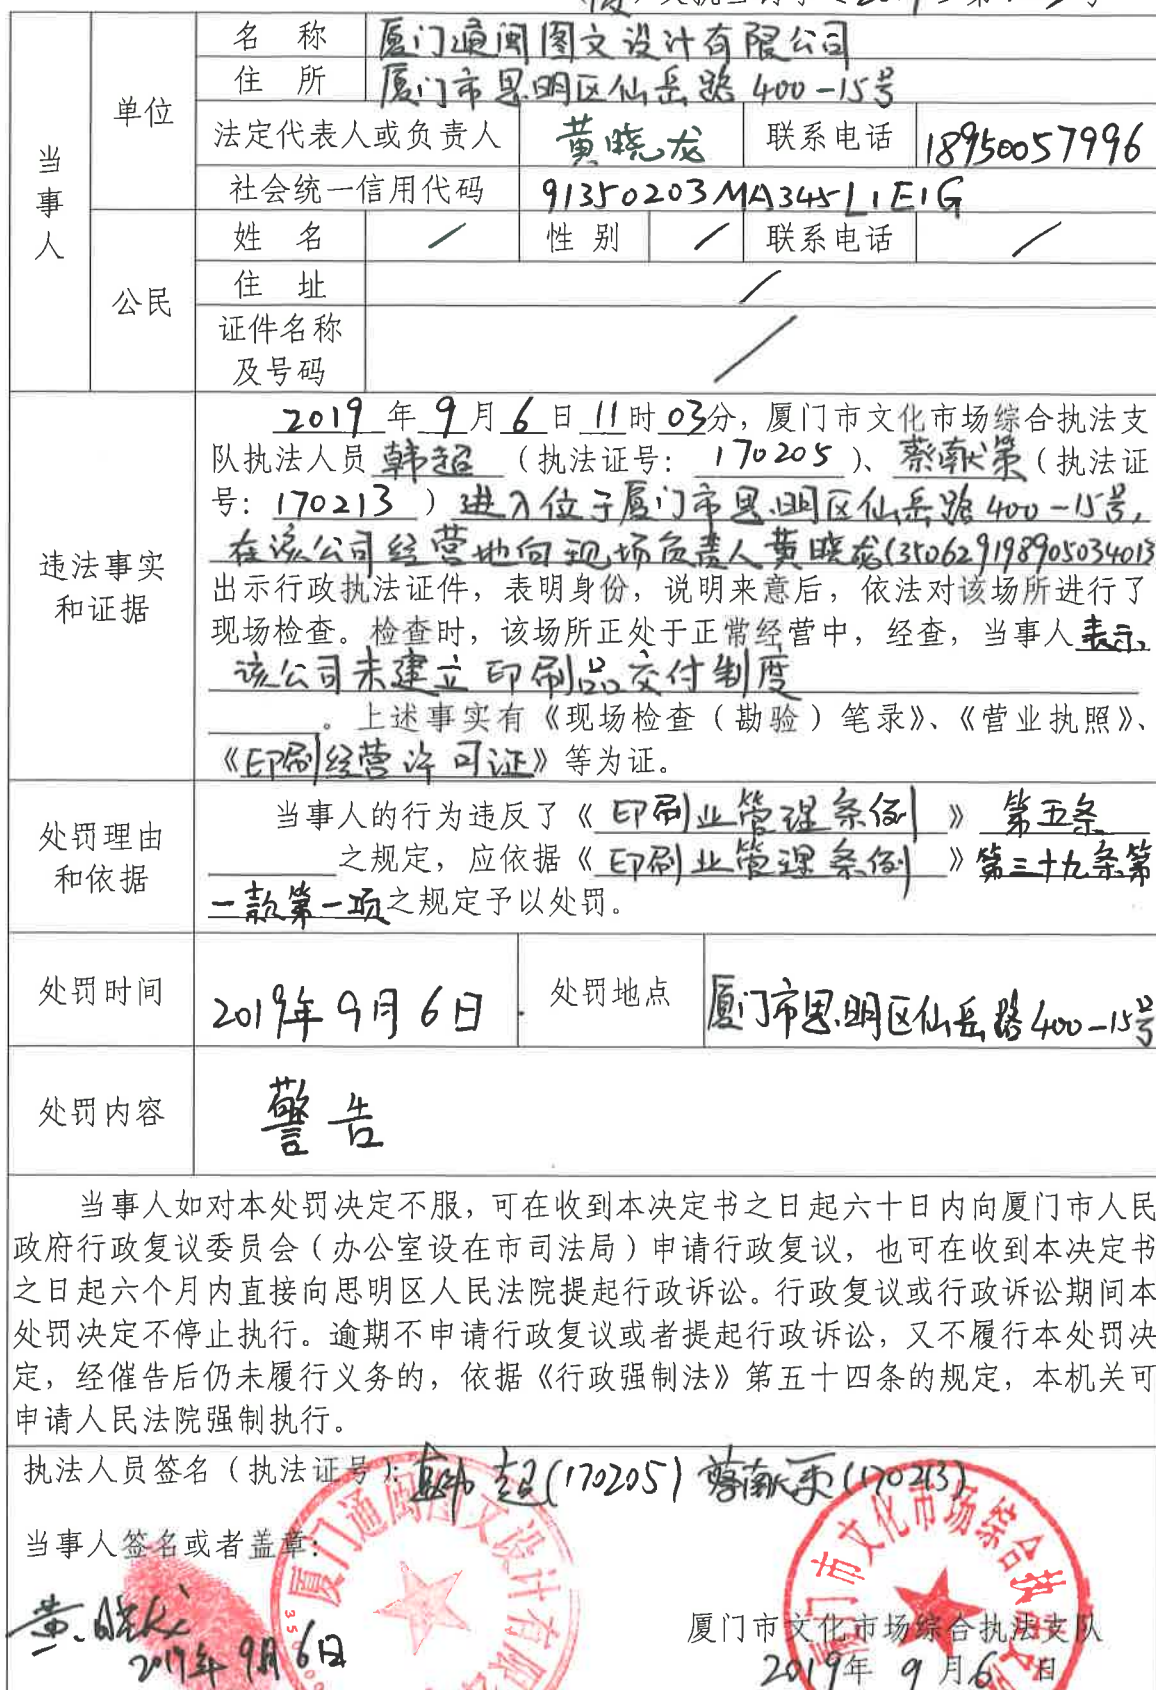 当事人
单位
名 称 厦门通闽图文设计有限公司
住 所 厦门市思明区仙岳路400-15号
法定代表人或负责人 黄晓龙 联系电话 18950057996
社会统一信用代码 91350203MA345L1E1G
公民
姓 名 / 性 别 / 联系电话 /
住 址 /
证件名称
及号码 /
违法事实
和证据
2019年9月6日11时03分，厦门市文化市场综合执法支
队执法人员韩超（执法证号：170205）、蔡献策（执法证
号：170213）进入位于厦门市思明区仙岳路400-15号，
在该公司经营地向现场负责人黄晓龙(350629198905034013
出示行政执法证件，表明身份，说明来意后，依法对该场所进行了
现场检查。检查时，该场所正处于正常经营中，经查，当事人表示，
该公司未建立印刷品交付制度
。上述事实有《现场检查（勘验）笔录》、《营业执照》、
《印刷经营许可证》等为证。
处罚理由
和依据
当事人的行为违反了《印刷业管理条例》第五条
之规定，应依据《印刷业管理条例》第三十九条第
一款第一项之规定予以处罚。
处罚时间 2019年9月6日 处罚地点 厦门市思明区仙岳路400-15号
处罚内容 警告
当事人如对本处罚决定不服，可在收到本决定书之日起六十日内向厦门市人民
政府行政复议委员会（办公室设在市司法局）申请行政复议，也可在收到本决定书
之日起六个月内直接向思明区人民法院提起行政诉讼。行政复议或行政诉讼期间本
处罚决定不停止执行。逾期不申请行政复议或者提起行政诉讼，又不履行本处罚决
定，经催告后仍未履行义务的，依据《行政强制法》第五十四条的规定，本机关可
申请人民法院强制执行。
执法人员签名（执法证号）：韩超(170205) 蔡献策(170213)
当事人签名或者盖章：
厦门通闽图文设计有限
厦门市文化市场综合执
黄晓龙
2019年9月6日
厦门市文化市场综合执法支队
2019年9月6日